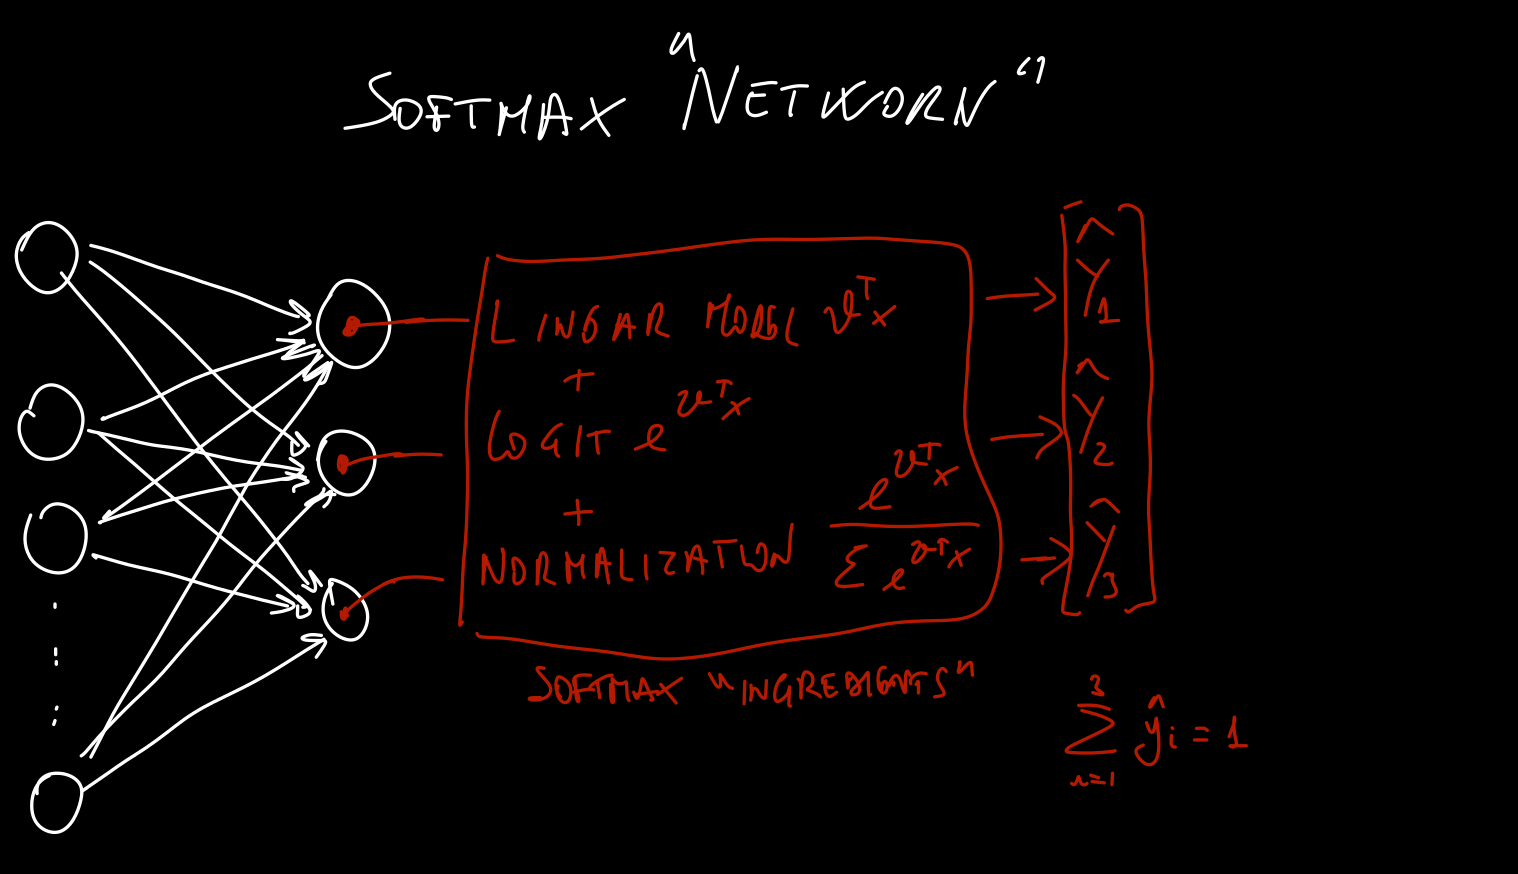 SOFTMAX "NETWORK"
LINEAR MODEL ϑᵀx
+
LOGIT e^ϑᵀx
+
NORMALIZATION e^ϑᵀx / Σ e^ϑᵀx
SOFTMAX "INGREDIENTS"
ŷ₁
ŷ₂
ŷ₃
3
∑ ŷi = 1
i=1